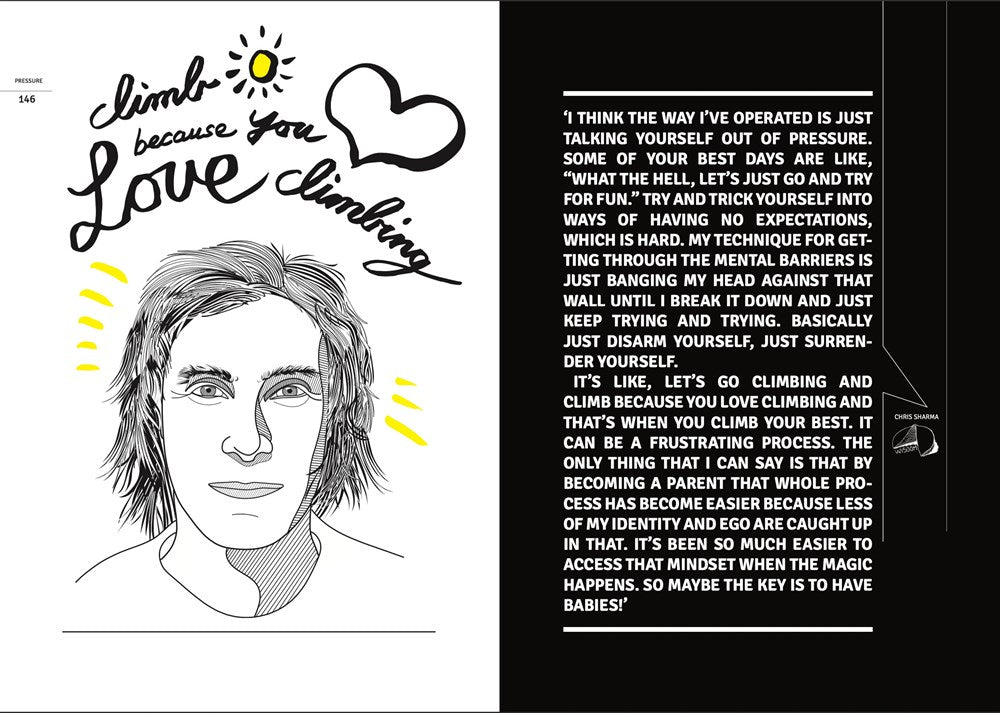 PRESSURE
146
climb
because you
Love climbing
‘I THINK THE WAY I’VE OPERATED IS JUST
TALKING YOURSELF OUT OF PRESSURE.
SOME OF YOUR BEST DAYS ARE LIKE,
“WHAT THE HELL, LET’S JUST GO AND TRY
FOR FUN.” TRY AND TRICK YOURSELF INTO
WAYS OF HAVING NO EXPECTATIONS,
WHICH IS HARD. MY TECHNIQUE FOR GET-
TING THROUGH THE MENTAL BARRIERS IS
JUST BANGING MY HEAD AGAINST THAT
WALL UNTIL I BREAK IT DOWN AND JUST
KEEP TRYING AND TRYING. BASICALLY
JUST DISARM YOURSELF, JUST SURREN-
DER YOURSELF.
IT’S LIKE, LET’S GO CLIMBING AND
CLIMB BECAUSE YOU LOVE CLIMBING AND
THAT’S WHEN YOU CLIMB YOUR BEST. IT
CAN BE A FRUSTRATING PROCESS. THE
ONLY THING THAT I CAN SAY IS THAT BY
BECOMING A PARENT THAT WHOLE PRO-
CESS HAS BECOME EASIER BECAUSE LESS
OF MY IDENTITY AND EGO ARE CAUGHT UP
IN THAT. IT’S BEEN SO MUCH EASIER TO
ACCESS THAT MINDSET WHEN THE MAGIC
HAPPENS. SO MAYBE THE KEY IS TO HAVE
BABIES!’
CHRIS SHARMA
WISDOM